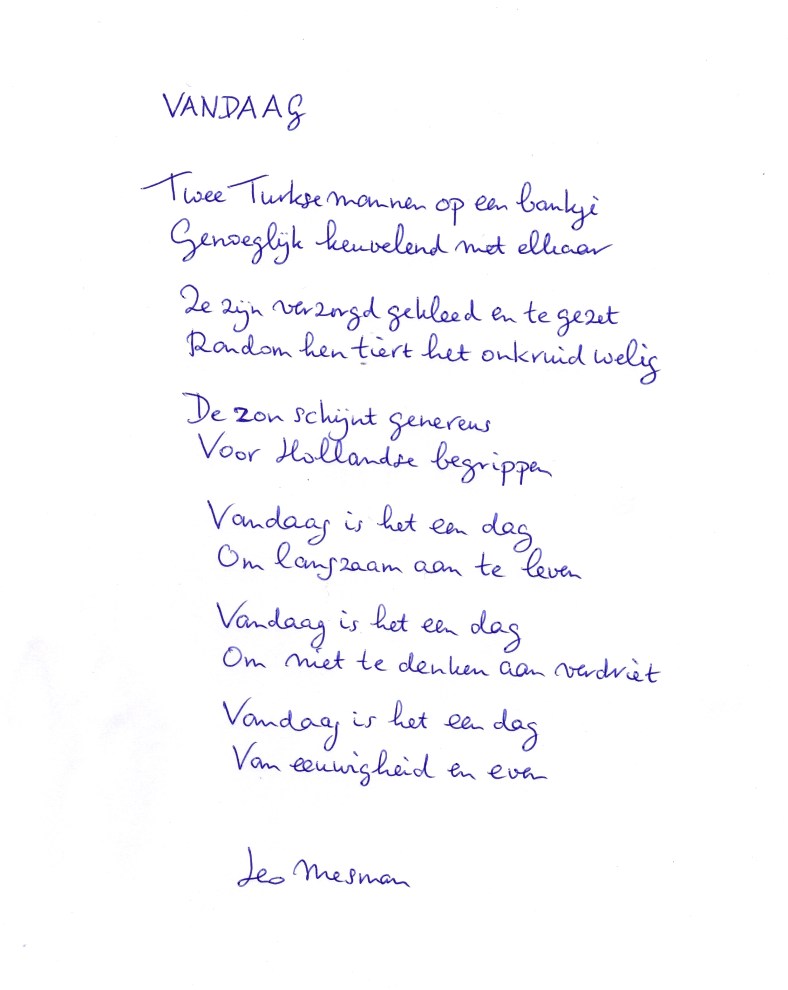 VANDAAG
Twee Turkse mannen op een bankje
Genoeglijk keuvelend met elkaar
Ze zijn verzorgd gekleed en te gezet
Rondom hen tiert het onkruid welig
De zon schijnt genereus
Voor Hollandse begrippen
Vandaag is het een dag
Om langzaam aan te leven
Vandaag is het een dag
Om niet te denken aan verdriet
Vandaag is het een dag
Van eeuwigheid en even
Leo Mesman